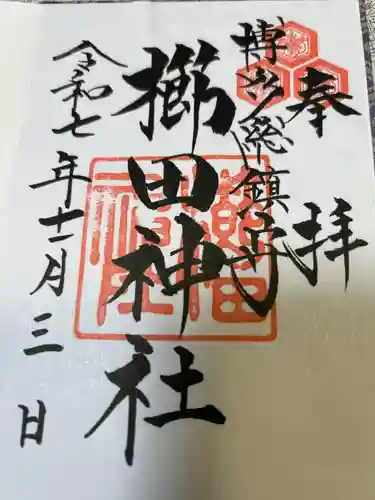 奉拝
博多総鎮守
櫛田神社
令和七年十一月三日
櫛田神社